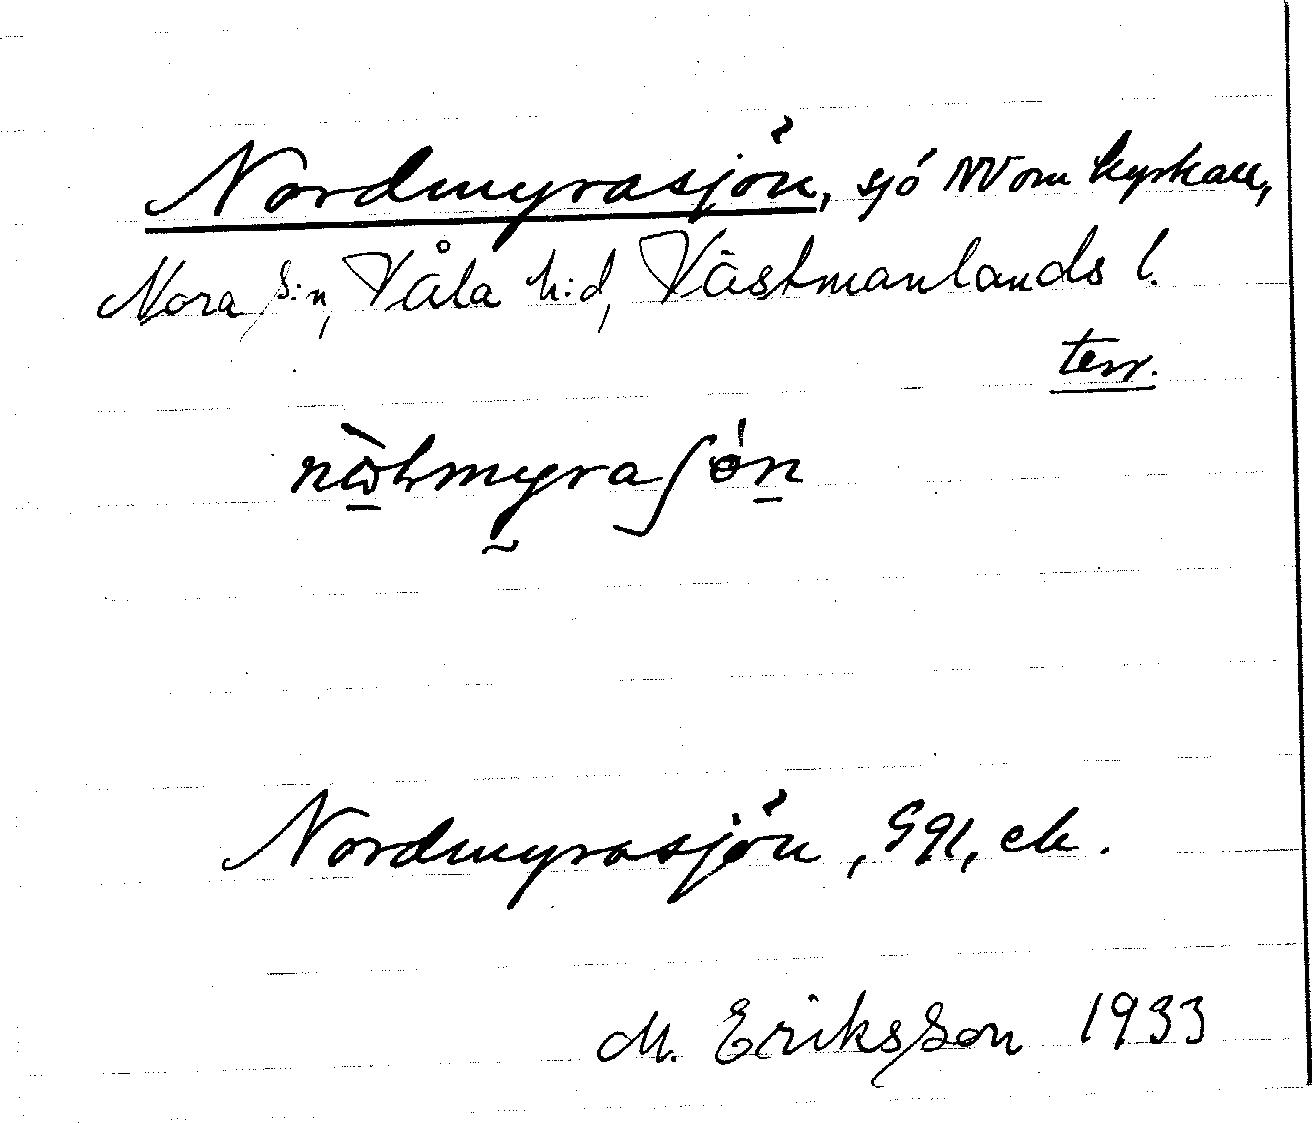 Nordmyrasjön, sjö NV om kyrkan,
Nora s:n, Våla h:d, Västmanlands l.
terr.
Nordmyrasjön, Gql, ek.
M. Eriksson 1933